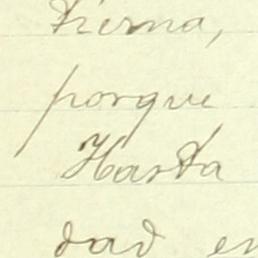 tierna,
porque
Hasta
dad en